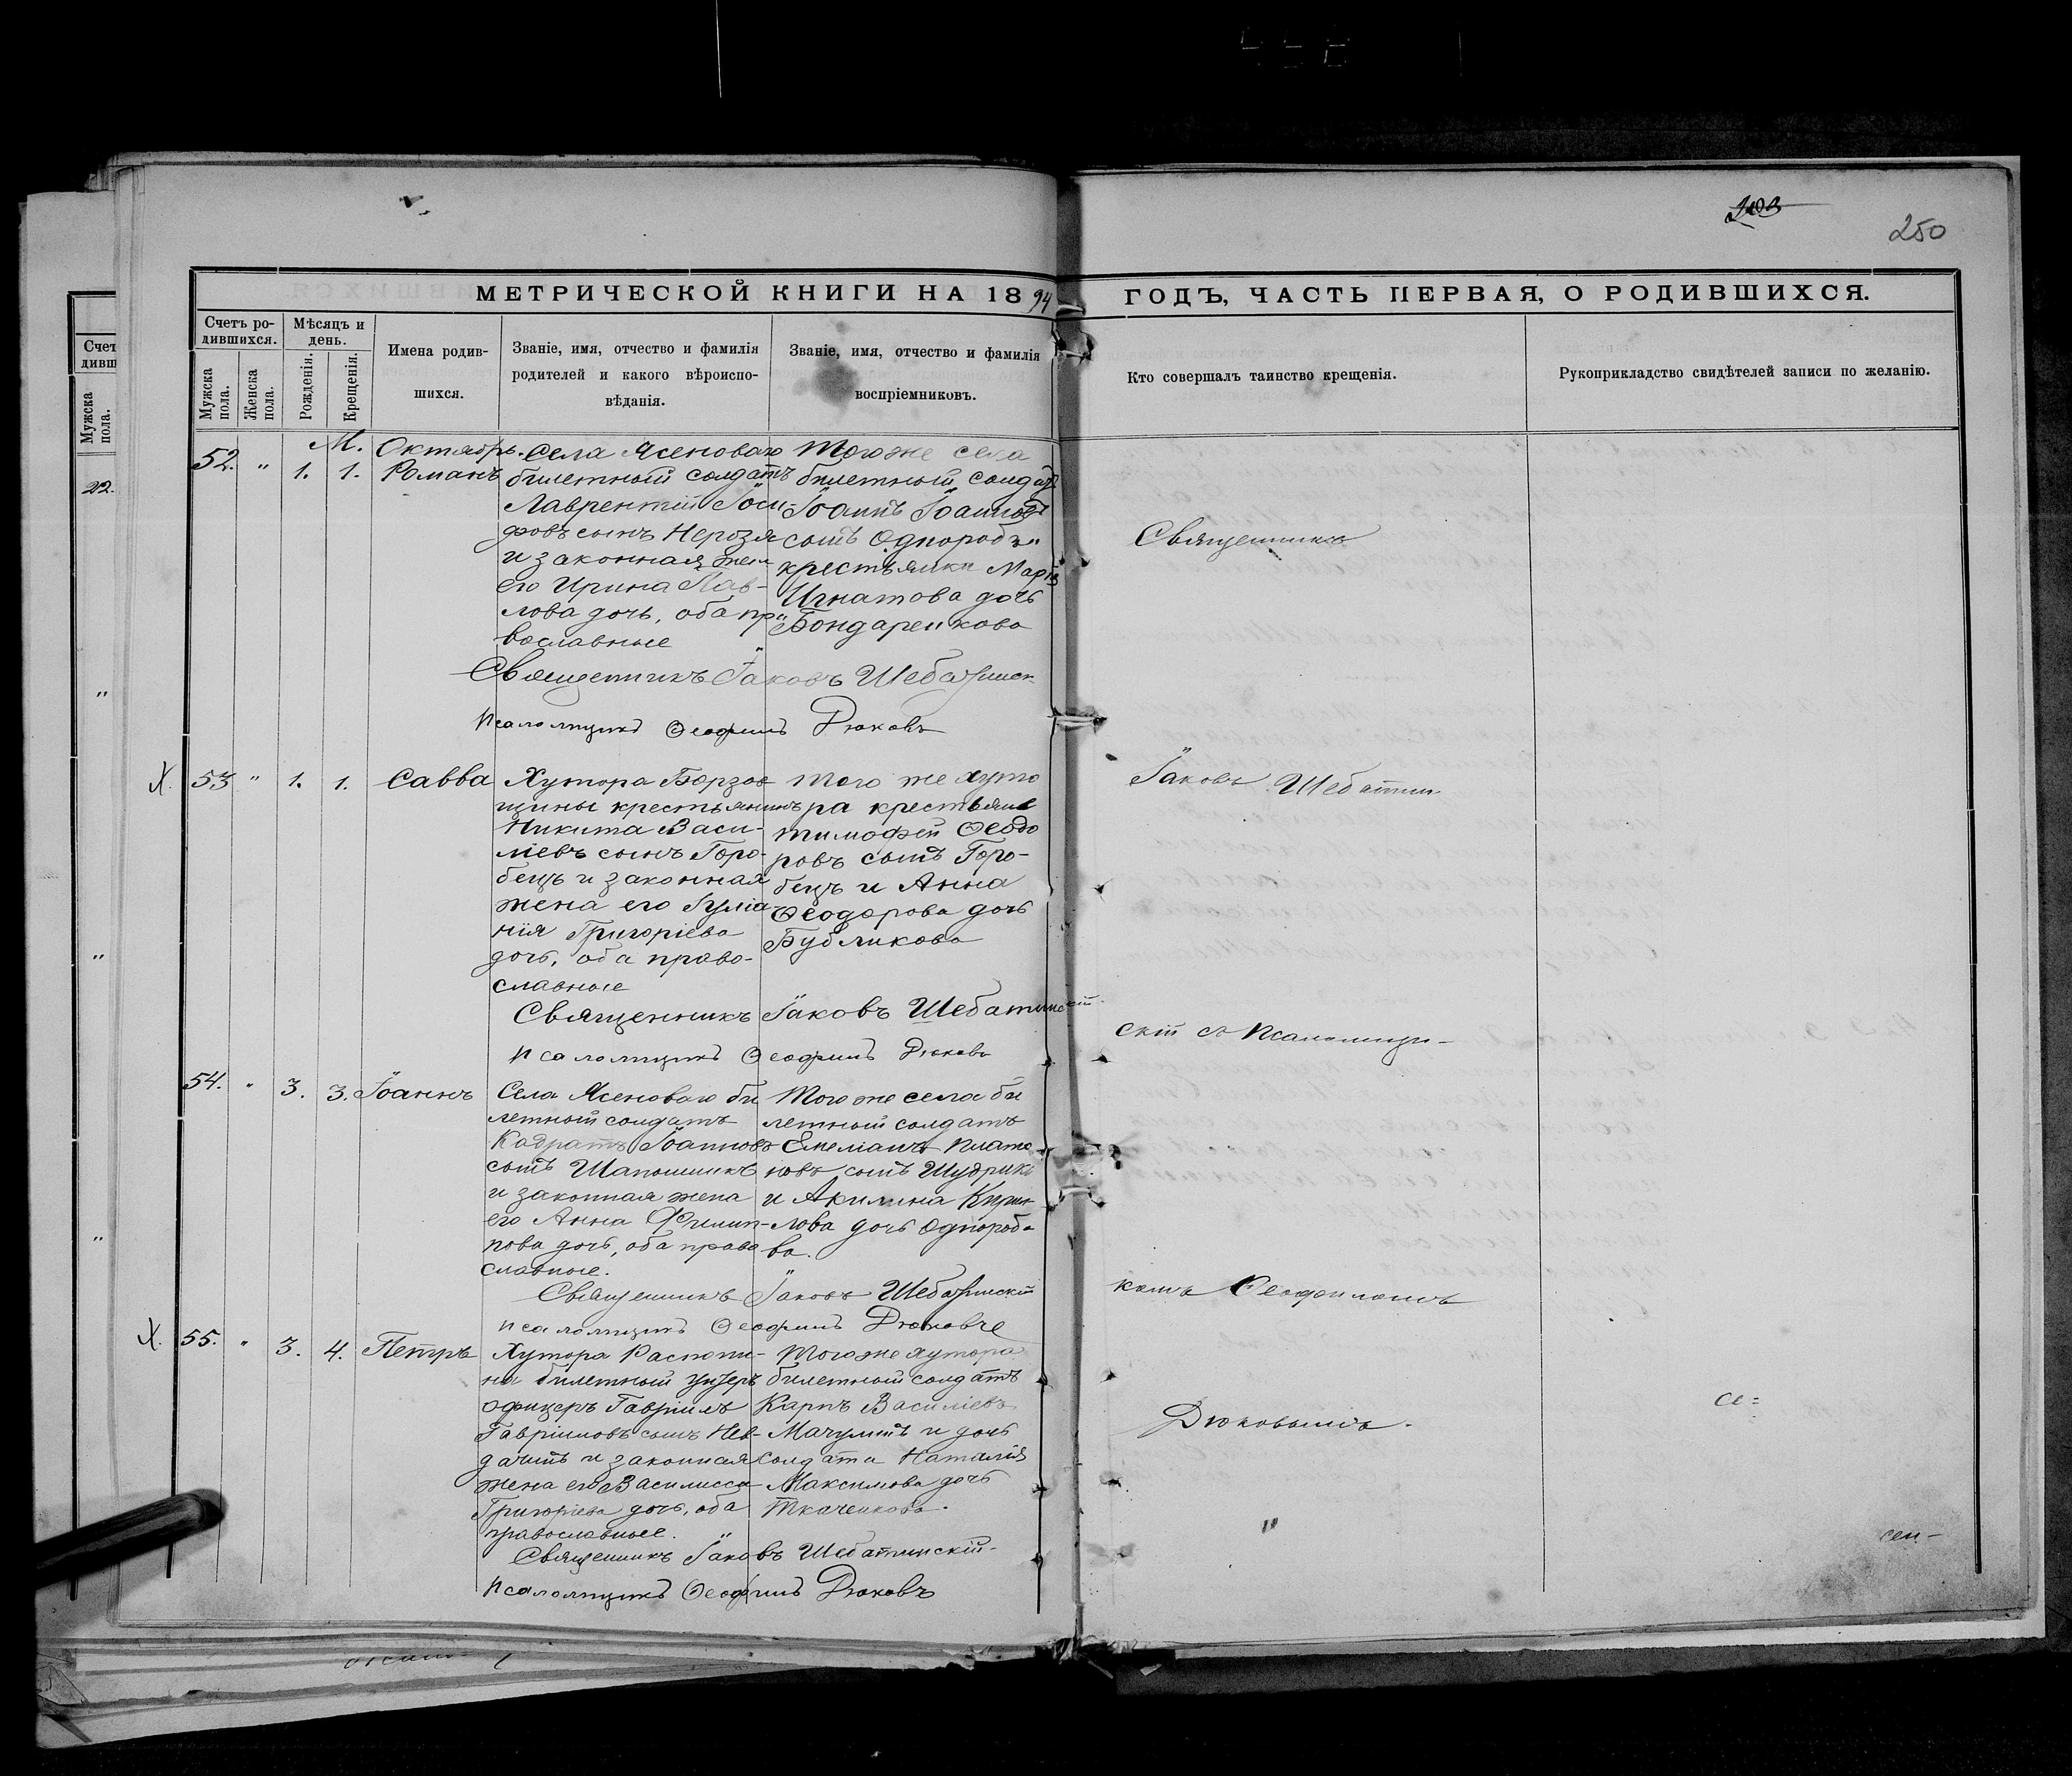 250
МЕТРИЧЕСКОЙ КНИГИ НА 1894 ГОДЪ, ЧАСТЬ ПЕРВАЯ, О РОДИВШИХСЯ.
Счетъ ро-
дившихся.
Мѣсяцъ и
день.
Мужска
пола.
Женска
пола.
Рожденія.
Крещенія.
Имена родив-
шихся.
Званіе, имя, отчество и фамилія
родителей и какого вѣроиспо-
вѣданія.
Званіе, имя, отчество и фамилія
воспріемниковъ.
Кто совершалъ таинство крещенія.
Рукоприкладство свидѣтелей записи по желанію.
Счет
дивш
Мужска
пола.
22.
"
"
"
М. Октябрь.
52. " 1. 1. Романъ
Села Ясеноваго
билетный солдатъ
Лаврентій Іоси-
фовъ сынъ Нерозя
и законная жена
его Ирина Пав-
лова дочь, оба пра
вославные
Того же села
билетный солдатъ
Іоаннъ Іоанновъ
сынъ Одноробъ и
крестьянки Марѳа
Игнатова дочь
Бондаренкова
Священникъ Іаковъ Шебатинск
Псаломщикъ Ѳеофилъ Дюковъ
Х. 53 " 1. 1. Савва
Хутора Борзов
щины крестьянинъ
Никита Васи-
ліевъ сынъ Горо-
бецъ и законная
жена его Іуліа-
нія Григоріева
дочь, оба право-
славные
Того же хуто
ра крестьяне
Тимофей Ѳеодо
ровъ сынъ Горо-
бецъ и Анна
Ѳеодорова дочь
Бубликова
Священникъ Іаковъ Шебатинскій
Псаломщикъ Ѳеофилъ Дюковъ
54. " 3. 3. Іоаннъ
Села Ясеноваго би
летный солдатъ
Кодратъ Іоанновъ
сынъ Шапошникъ
и законная жена
его Анна Филип-
пова дочь, оба право
славные.
Того же села би
летный солдатъ
Емеліанъ Плато
новъ сынъ Шудрикъ
и Акилина Кирил-
лова дочь Однороб-
ва.
Священникъ Іаковъ Шебатинскій
Псаломщикъ Ѳеофилъ Дюковъ
Х. 55. " 3. 4. Петръ
Хутора Распопи-
на билетный унтеръ
офицеръ Гавріилъ
Гавріиловъ сынъ Нев-
дачинъ и законная
жена его Василисса
Григоріева дочь, оба
православные.
Того же хутора
билетный солдатъ
Карпъ Василіевъ
Мачулинъ и дочь
солдата Наталія
Максимова дочь
Ткаченкова.
Священникъ Іаковъ Шебатинскій
Псаломщикъ Ѳеофилъ Дюковъ
Священникъ
Іаковъ Шебатин
скій съ Псаломщи-
комъ Ѳеофиломъ
Дюковымъ.
"
се=
сен-